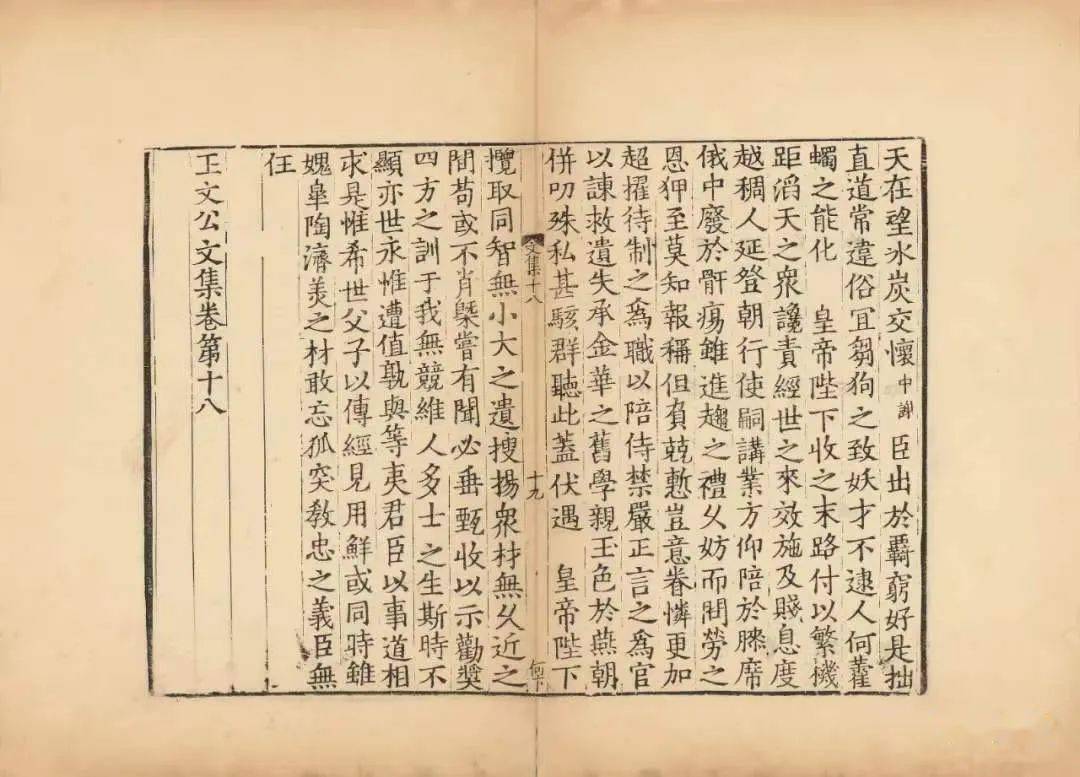 天在望冰炭交懷中謝臣出於羇窮好是拙
直道常違俗冝芻狗之致妖才不逮人何藿
蠋之能化 皇帝陛下收之末路付以繁機
距滔天之衆讒責經世之來效施及賤息度
越稠人延登朝行使嗣講業方仰陪於𦡱席
俄中廢於骭瘍雖進趨之禮乆妨而問勞之
恩狎至莫知報稱但負兢慙豈意眷憐更加
超擢待制之爲職以陪侍禁嚴正言之爲官
以諫救遺失承金華之舊學親玉色於燕朝
併叨殊私甚駭群聽此蓋伏遇 皇帝陛下
文集十八
十九
攬取同智無小大之遺搜揚衆材無乆近之
間苟或不肖槩嘗有聞必垂甄收以示勸奬
四方之訓于我無競維人多士之生斯時不
顯亦世永惟遭值孰與等夷君臣以事道相
求是惟希世父子以傳經見用鮮或同時雖
媿臯陶濟美之材敢忘狐突敎忠之義臣無
任
王文公文集卷第十八